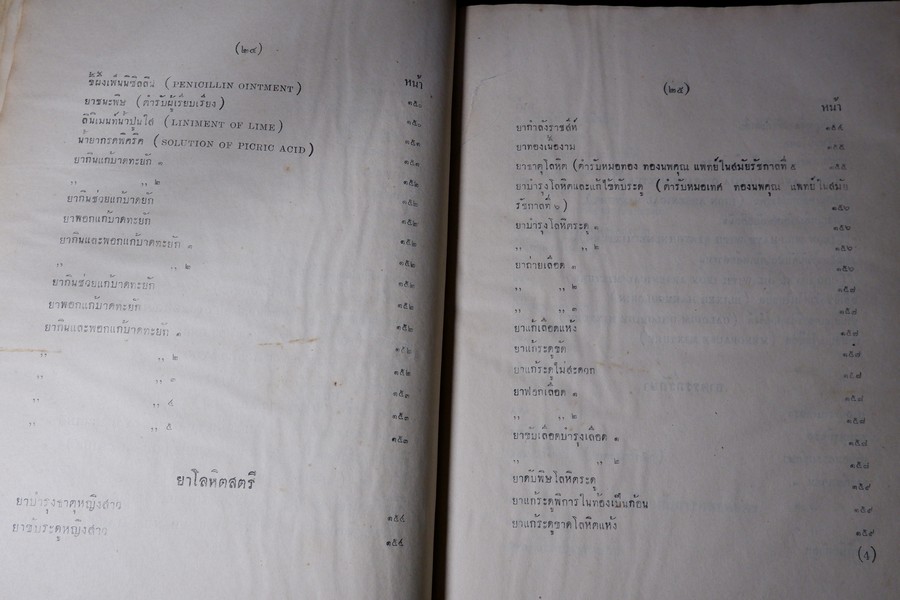 (๒๔)
หน้า
ขี้ผึ้งเพ็นนิซิลลิน (PENICILLIN OINTMENT) ๑๕๐
ยาชนะพิษ (ตำรับผู้เรียบเรียง) ๑๕๐
ลินิเมนท์น้ำปูนใส (LINIMENT OF LIME) ๑๕๑
น้ำยากรดพิคริค (SOLUTION OF PICRIC ACID) ๑๕๑
ยากินแก้บาดทะยัก ๑ ๑๕๒
,, ,, ๒ ๑๕๒
ยากินช่วยแก้บาดยัก ๑๕๒
ยาพอกแก้บาดทะยัก ๑๕๒
ยากินและพอกแก้บาดทะยัก ๑ ๑๕๒
,, ,, ๒ ๑๕๒
ยากินช่วยแก้บาดทะยัก ๑๕๒
ยาพอกแก้บาดทะยัก ๑๕๒
ยากินและพอกแก้บาดทะยัก ๑ ๑๕๒
,, ,, ๒ ๑๕๒
,, ,, ๓ ๑๕๓
,, ,, ๔ ๑๕๓
,, ,, ๕ ๑๕๓
ยาโลหิตสตรี
ยาบำรุงธาตุหญิงสาว ๑๕๔
ยาขับระดูหญิงสาว ๑๕๔
(๒๕)
หน้า
ยากำลังราชสีห์ ๑๕๕
ยาทองเนื้องาม ๑๕๕
ยาธาตุโลหิต (ตำรับหมอทอง ทองนพคุณ แพทย์ในสมัยรัชกาลที่ ๕ ๑๕๕
ยาบำรุงโลหิตและแก้ไข้ทับระดู (ตำรับหมอเทศ ทองนพคุณ แพทย์ในสมัย
รัชกาลที่ ๖) ๑๕๖
ยาบำรุงโลหิตระดู ๑ ๑๕๖
,, ,, ๒ ๑๕๖
ยาถ่ายเลือด ๑ ๑๕๖
,, ,, ๒ ๑๕๗
,, ,, ๓ ๑๕๗
ยาแก้เลือดแห้ง ๑๕๗
ยาแก้ระดูขัด ๑๕๗
ยาแก้ระดูไม่สะดวก ๑๕๗
ยาฟอกเลือด ๑ ๑๕๘
,, ,, ๒ ๑๕๘
ยาขับเลือดบำรุงเลือด ๑ ๑๕๘
,, ,, ๒ ๑๕๘
ยาดับพิษโลหิตระดู ๑๕๙
ยาแก้ระดูพิการในท้องเป็นก้อน ๑๕๙
ยาแก้ระดูขาดโลหิตแห้ง ๑๕๙
(4)